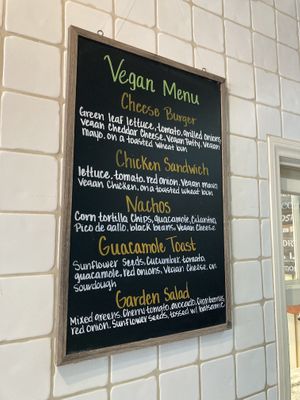 Vegan Menu
Cheese Burger
Green leaf lettuce, tomato, grilled onions
vegan cheddar cheese, vegan patty, vegan
mayo, on a toasted wheat bun
Chicken Sandwich
lettuce, tomato, red onion, vegan mayo
vegan chicken, on a toasted wheat bun
Nachos
Corn tortilla chips, guacamole, cilantro,
Pico de gallo, black beans, vegan cheese
Guacamole Toast
Sunflower seeds, cucumber, tomato,
guacamole, red onions, vegan cheese, on
sourdough
Garden Salad
Mixed greens, cherry tomato, avocado, cranberries
red onion, sunflower seeds, tossed w/ balsamic